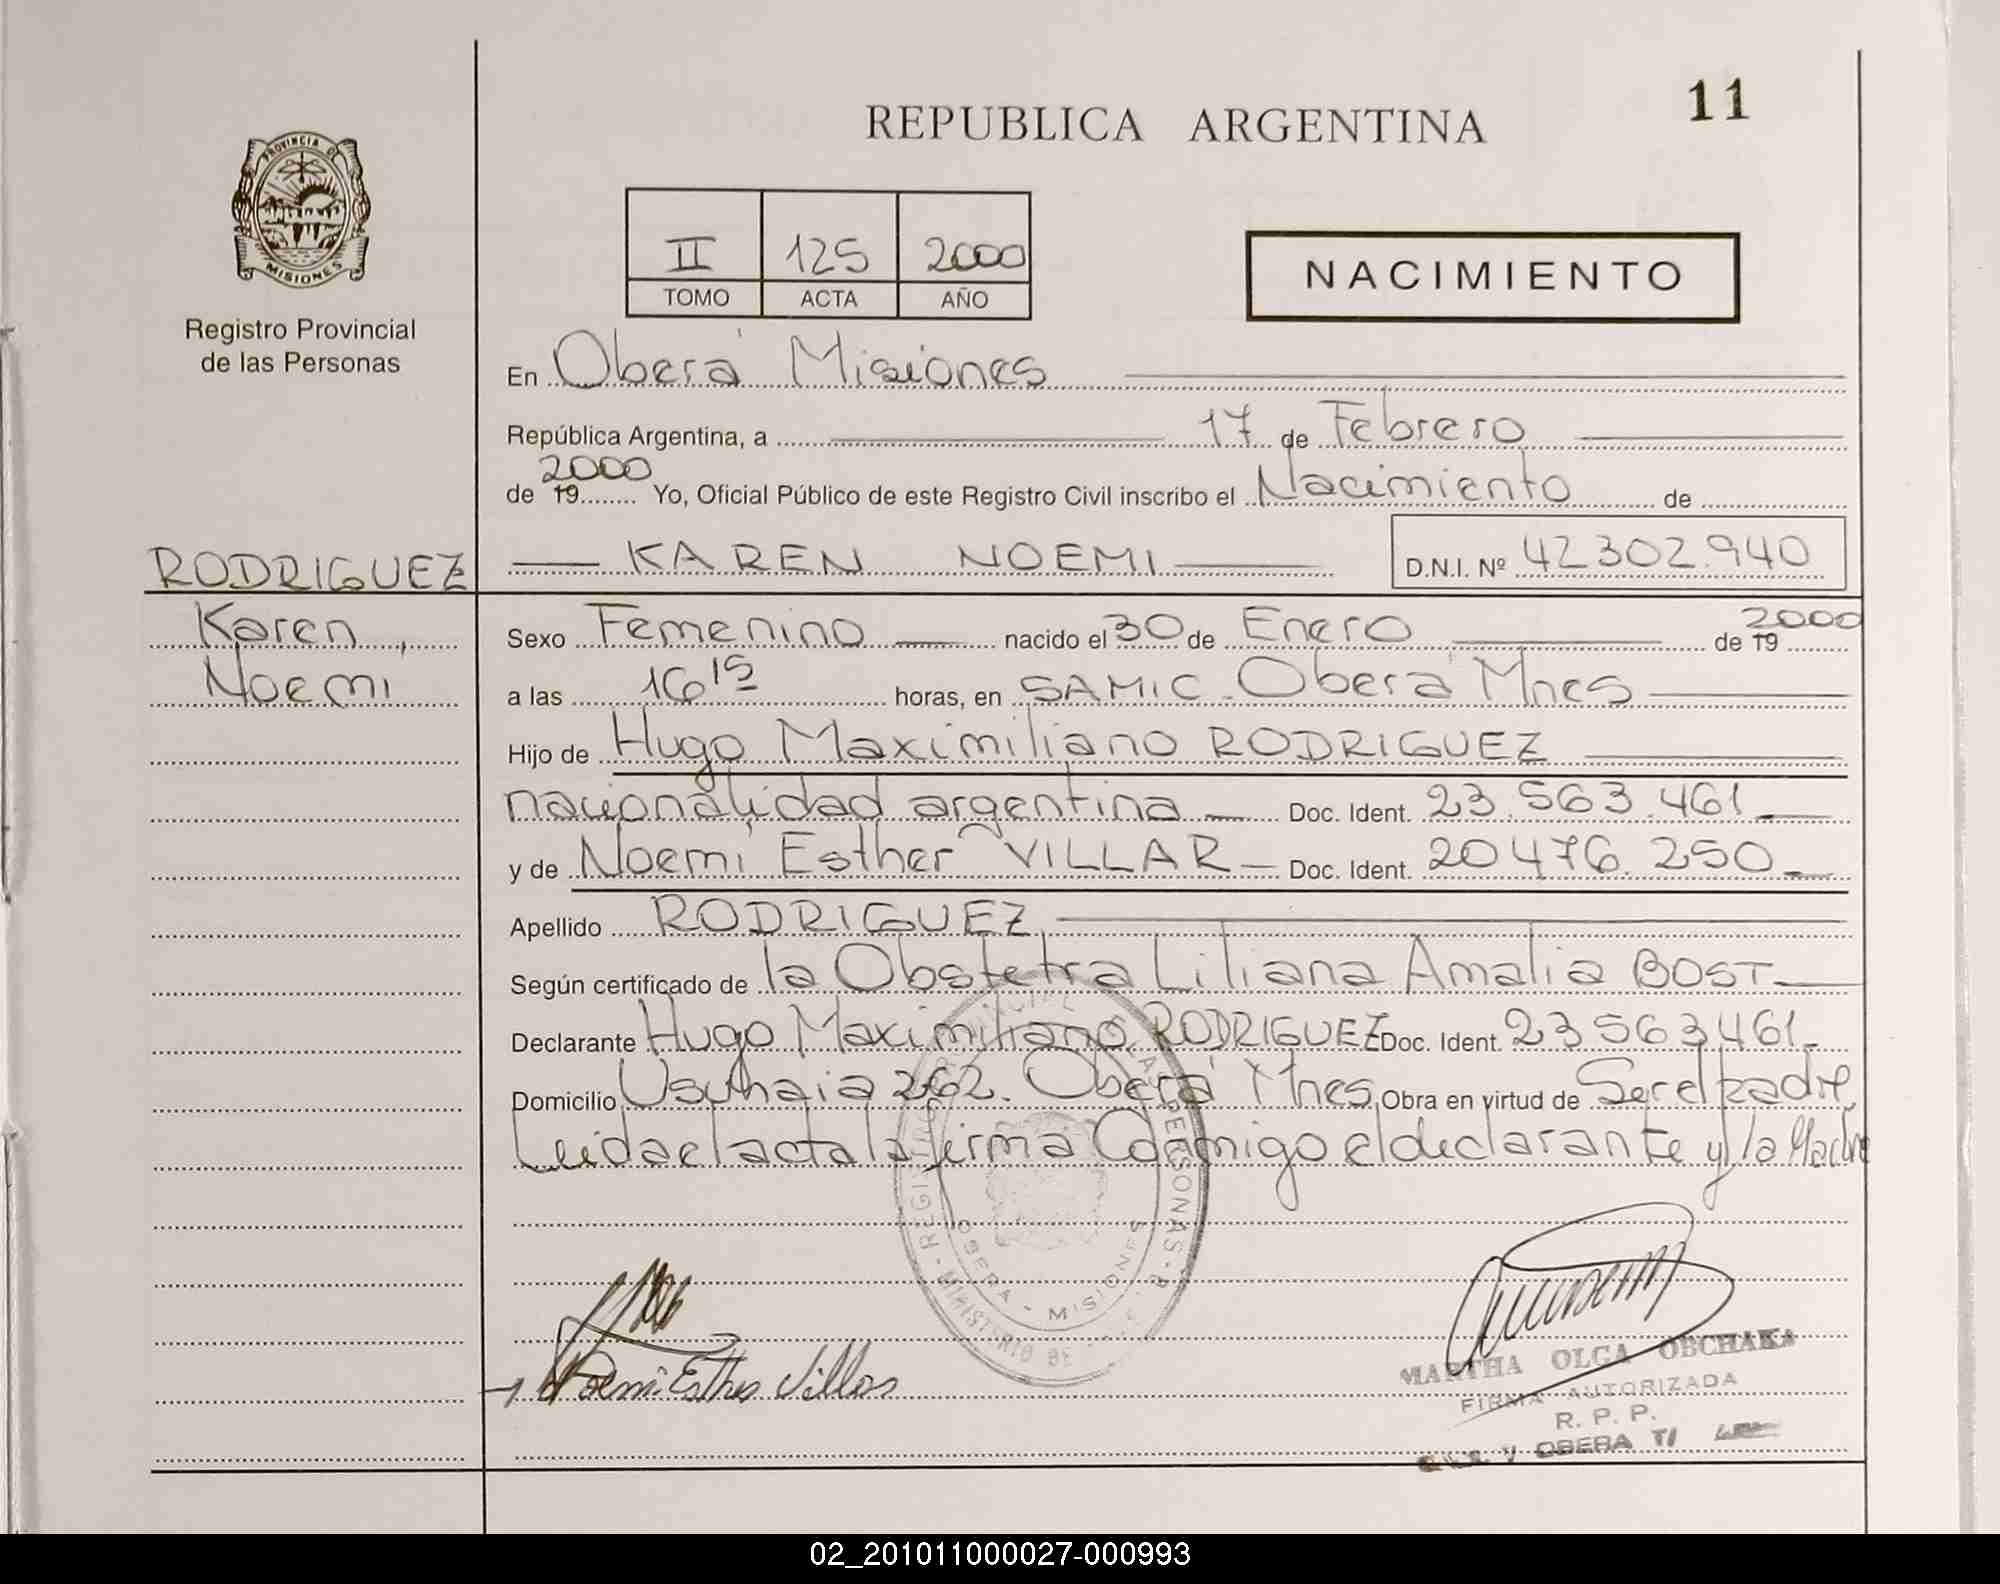 11
REPUBLICA ARGENTINA
PROVINCIA DE
MISIONES
Registro Provincial
de las Personas
II 125 2000
TOMO ACTA AÑO
NACIMIENTO
En Oberá Misiones
República Argentina, a 17 de Febrero
2000
de 19 Yo, Oficial Público de este Registro Civil inscribo el Nacimiento de
RODRIGUEZ KAREN NOEMI D.N.I. Nº 42302.940
Karen
Noemi
Sexo Femenino nacido el 30 de Enero de 19 2000
a las 16 15 horas, en SAMIC. Oberá Mnes
Hijo de Hugo Maximiliano RODRIGUEZ
nacionalidad argentina Doc. Ident. 23.563.461
y de Noemí Esther VILLAR Doc. Ident. 20476.250
Apellido RODRIGUEZ
Según certificado de la Obstetra Liliana Amalia BOST
Declarante Hugo Maximiliano RODRIGUEZ Doc. Ident. 23563461
Domicilio Usuhaia 262. Oberá Mnes Obra en virtud de Ser el Padre
Leida el acta la firma Conmigo el declarante y la Madre
OBERA - MISIONES
Noemi Esther Villar
MARTHA OLGA OBCHAKA
FIRMA AUTORIZADA
R. P. P.
OBERA
02_201011000027-000993